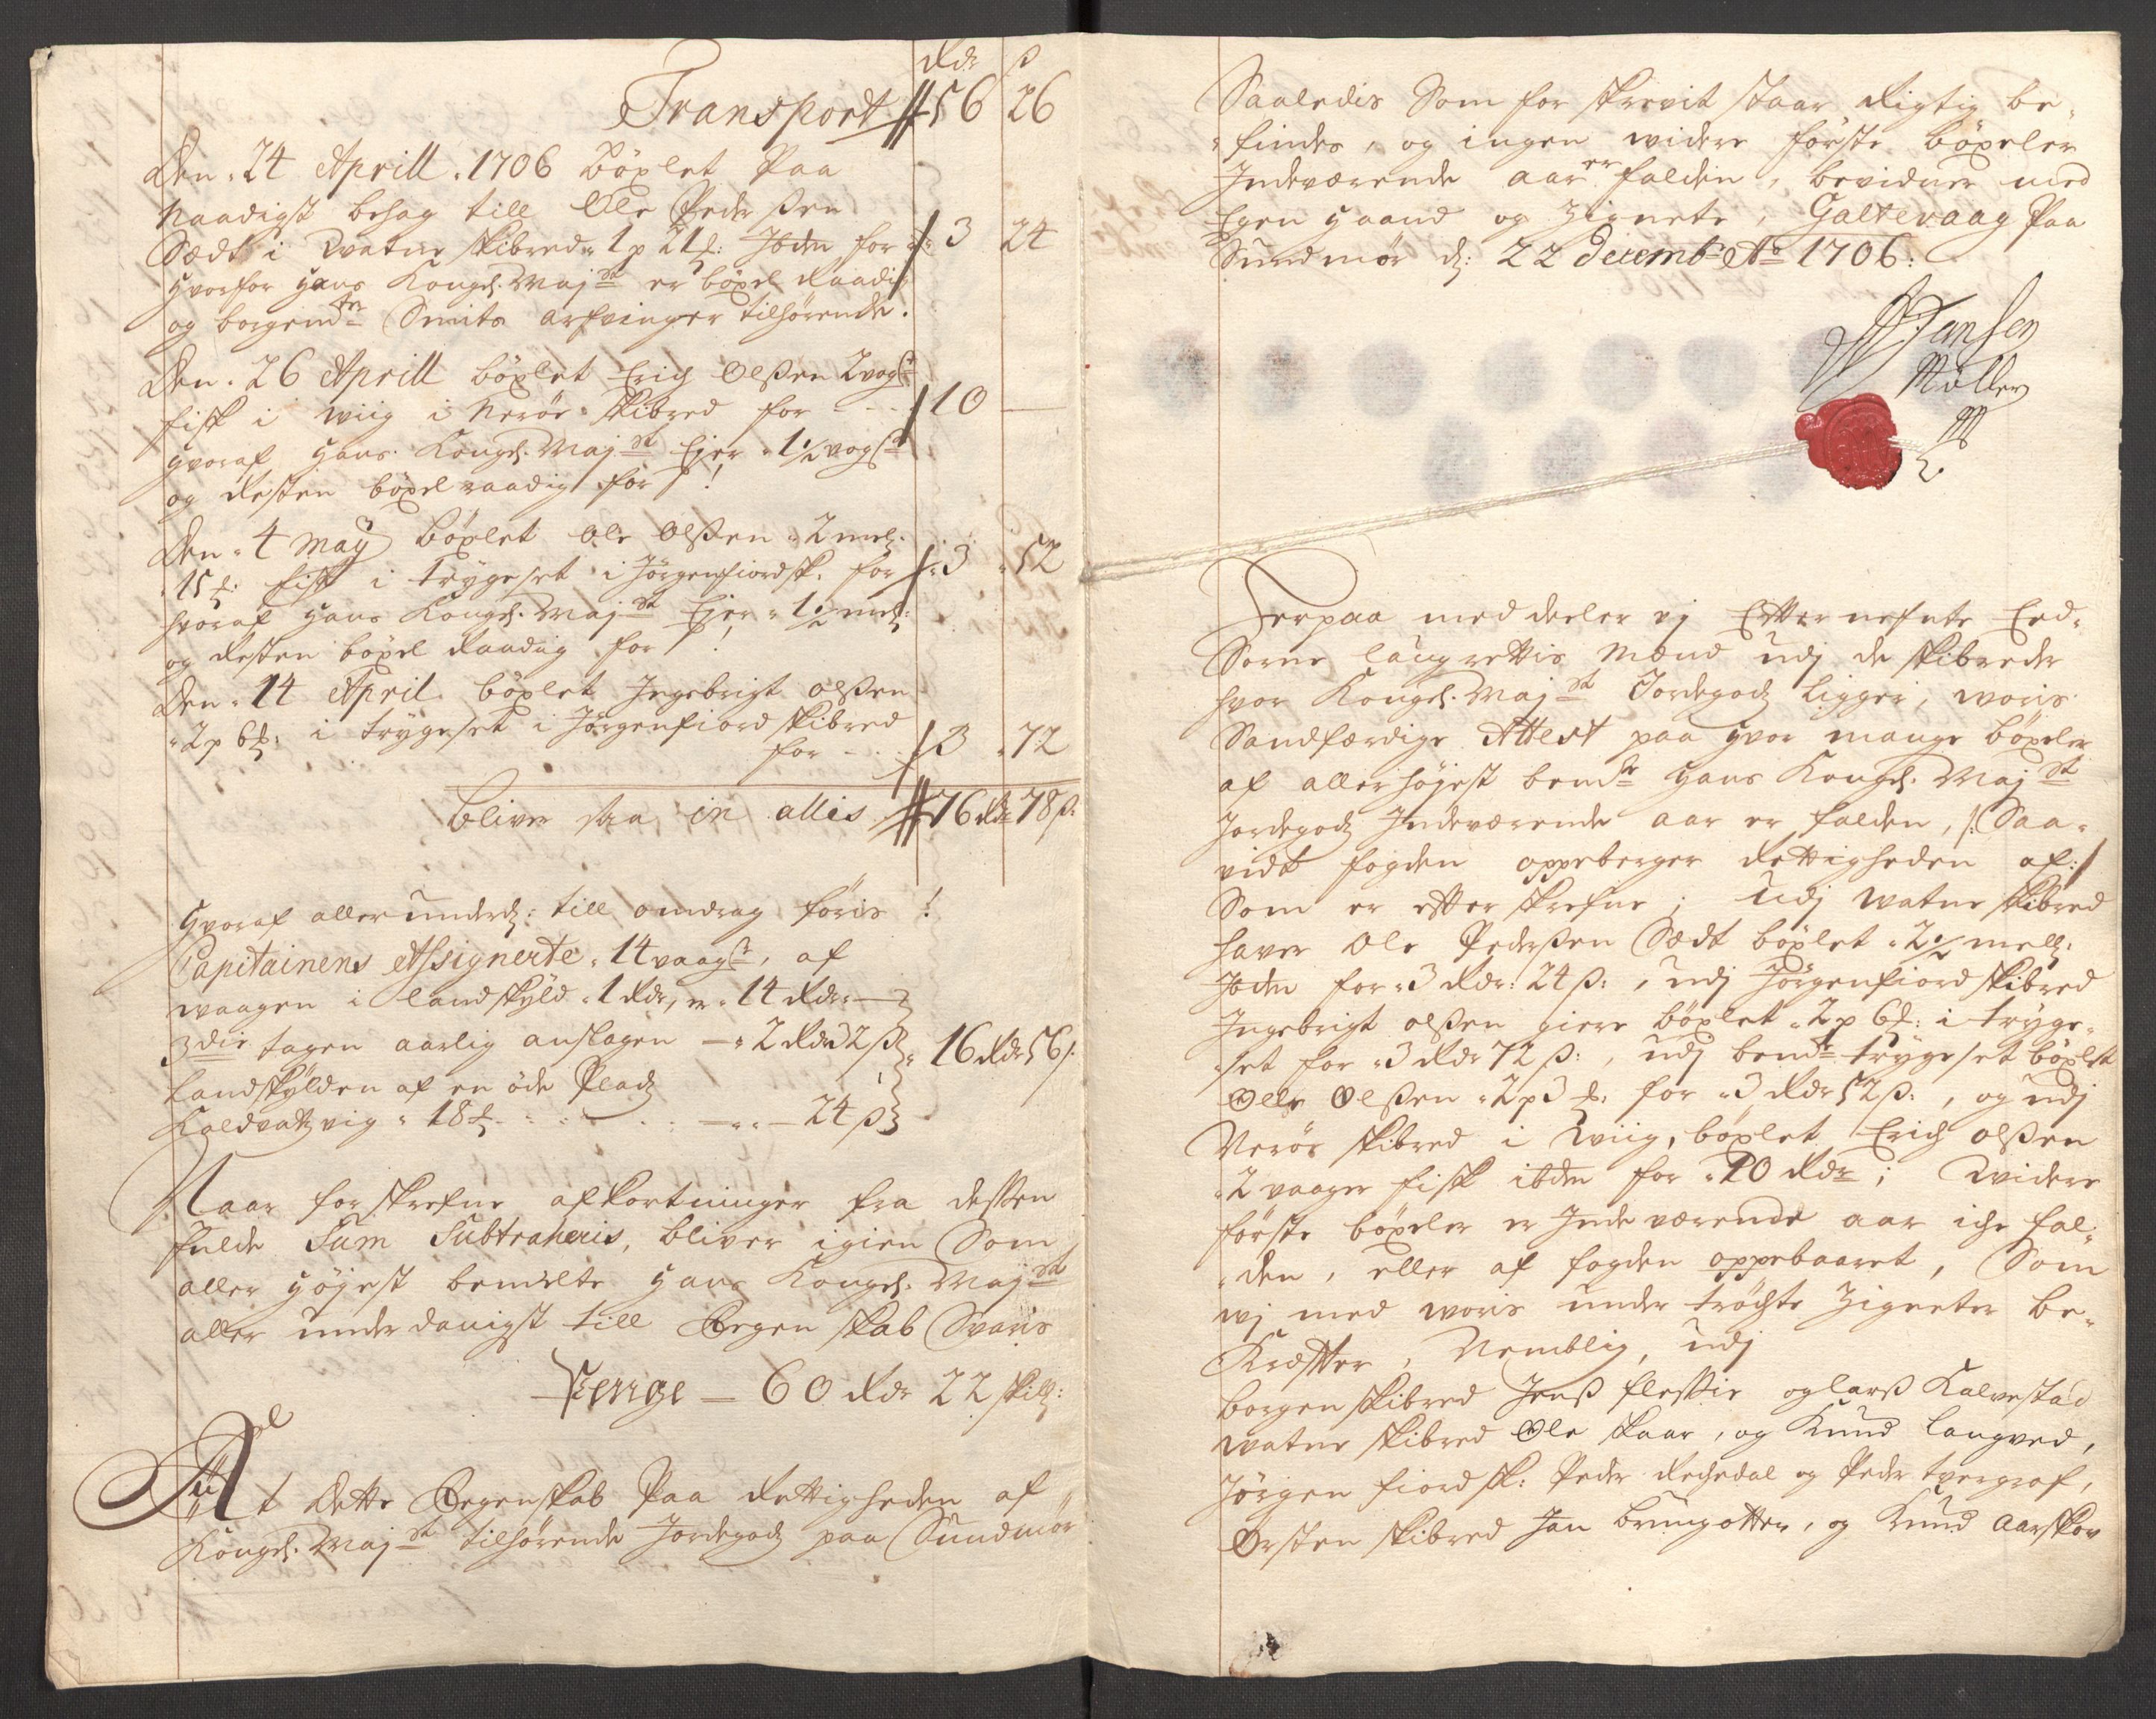 Rdr ß
Transport 56 26
Den 24 Aprill 1706 böxlet Paa
Naadigst behag till Ole Peder ßen
Sædt i Watne skibred 1 p 21 : Jtem for 3 24
hvorfor hans Kongl. Maj st er böxel Raadig
og borgem Smits arfvinger tilhörende.
Den 26 Aprill böxlet Erich Olßen 2 vog
fisk i wiig i Nerös skibred for - - - 10 —
hvoraf hans Kongl. Maj st Ejer 1 1/2 vog
og Resten böxel raadig for !
Den 4 May böxlet Ole Olßen 2 mel:
15 : fisk i trygeset i Jörgenfiord sk. for 3 52
hvoraf hans Kongl. Maj st Ejer 1 1/2 mel:
og Resten böxel Raadig for !
Den 14 April böxlet Jngebrigt olßen
2 p 6 : i trygeset i Jörgenfiord skibred
for - - - 3 72
Bliver saa in alles 76 Rdr 78 ß:
hvoraf allerunderd: till omdrag föris !
Capitainens Assignerte 14 vaag, af
waagen i landskyld 1 Rdr, er 14 Rdr —
3die tagen aarlig anslagen — 2 Rdr 32 ß 16 Rdr 56 ß:
Landskylden af en öde Plads
Koldvatzvig 18 — 24 ß
Naar forskrefne afkortninger fra dessen
fulde Sum Subtraheris, bliver igien Som
aller höjest bemelte hans Kongl. Maj st
aller underdanigst till Regenskab Svaris
Penge — 60 Rdr 22 skill:
At dette Regenskab Paa Rettigheden af
Kongl. Maj st tilhörende Jordegods paa Sundmör
Saaledis Som for skrevit staar Rigtig be-
findes, og ingen widere förste böxeler
Jndeværende aar er falden, bevidner med
Egen haand og Zignete, Galtevaag Paa
Sundmör d: 22 Decemb: Ao 1706:
Jansen
Möller
Herpaa meddeeler vj Efter nefnte Eed-
Sorne laugrettis Mænd udj de skibreder
hvor Kongl. Maj st Jordegods ligger, woris
Sandfærdige Attest paa hvor mange böxeler
af allerhöjest bem te hans Kongl. Maj st
Jordegods Jndeværende aar er falden, /: Saa-
vidt fogden oppeberger Rettigheden af: /
Som er efter skrefne; udj watne skibred
haver Ole Pederßen Sædt böxlet 2 1/2 mell:
Jtem for 3 Rdr: 24 ß:, udj Jörgenfiord skibred
Jngebrigt olßen giere böxlet 2 p 6 : i tryge-
set for 3 Rdr 72 ß:, udj bem te trygeset böxlet
Olle Olßen 2 p 3 : for 3 Rdr 52 ß:, og udj
Nerös skibred i wiig, böxlet Erich olßen
2 vaager fisk ibdm for 10 Rdr; widere
förste böxeler er Jndeværende aar iche fal-
den, eller af fogden oppebaaret, Som
wj med woris under tröchte Zigneter be-
Kræffter, Nemblig, udj
Borgen skibred Jenß fleskie og larß Kalvestad
watne skibred Ole skaar, og Knud langved,
Jörgen fiord sk: Peder Rechedal og Peder tvergrof,
Örsten skibred Jan bringotter, og Knud Aarskov